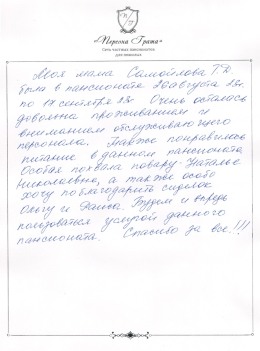 «Персона Грата»
Сеть частных пансионатов
для пожилых
Моя мама Самойлова Т.Д.
была в пансионате 26 августа 18г.
по 17 сентября 18г. Очень осталась
довольна проживанием и
вниманием обслуживающего
персонала. Также понравилось
питание в данном пансионате.
Особая похвала повару Наталье
Николаевне, а также особо
хочу поблагодарить сиделок
Ольгу и . Будем и впредь
пользоваться услугой данного
пансионата. Спасибо за все!!!